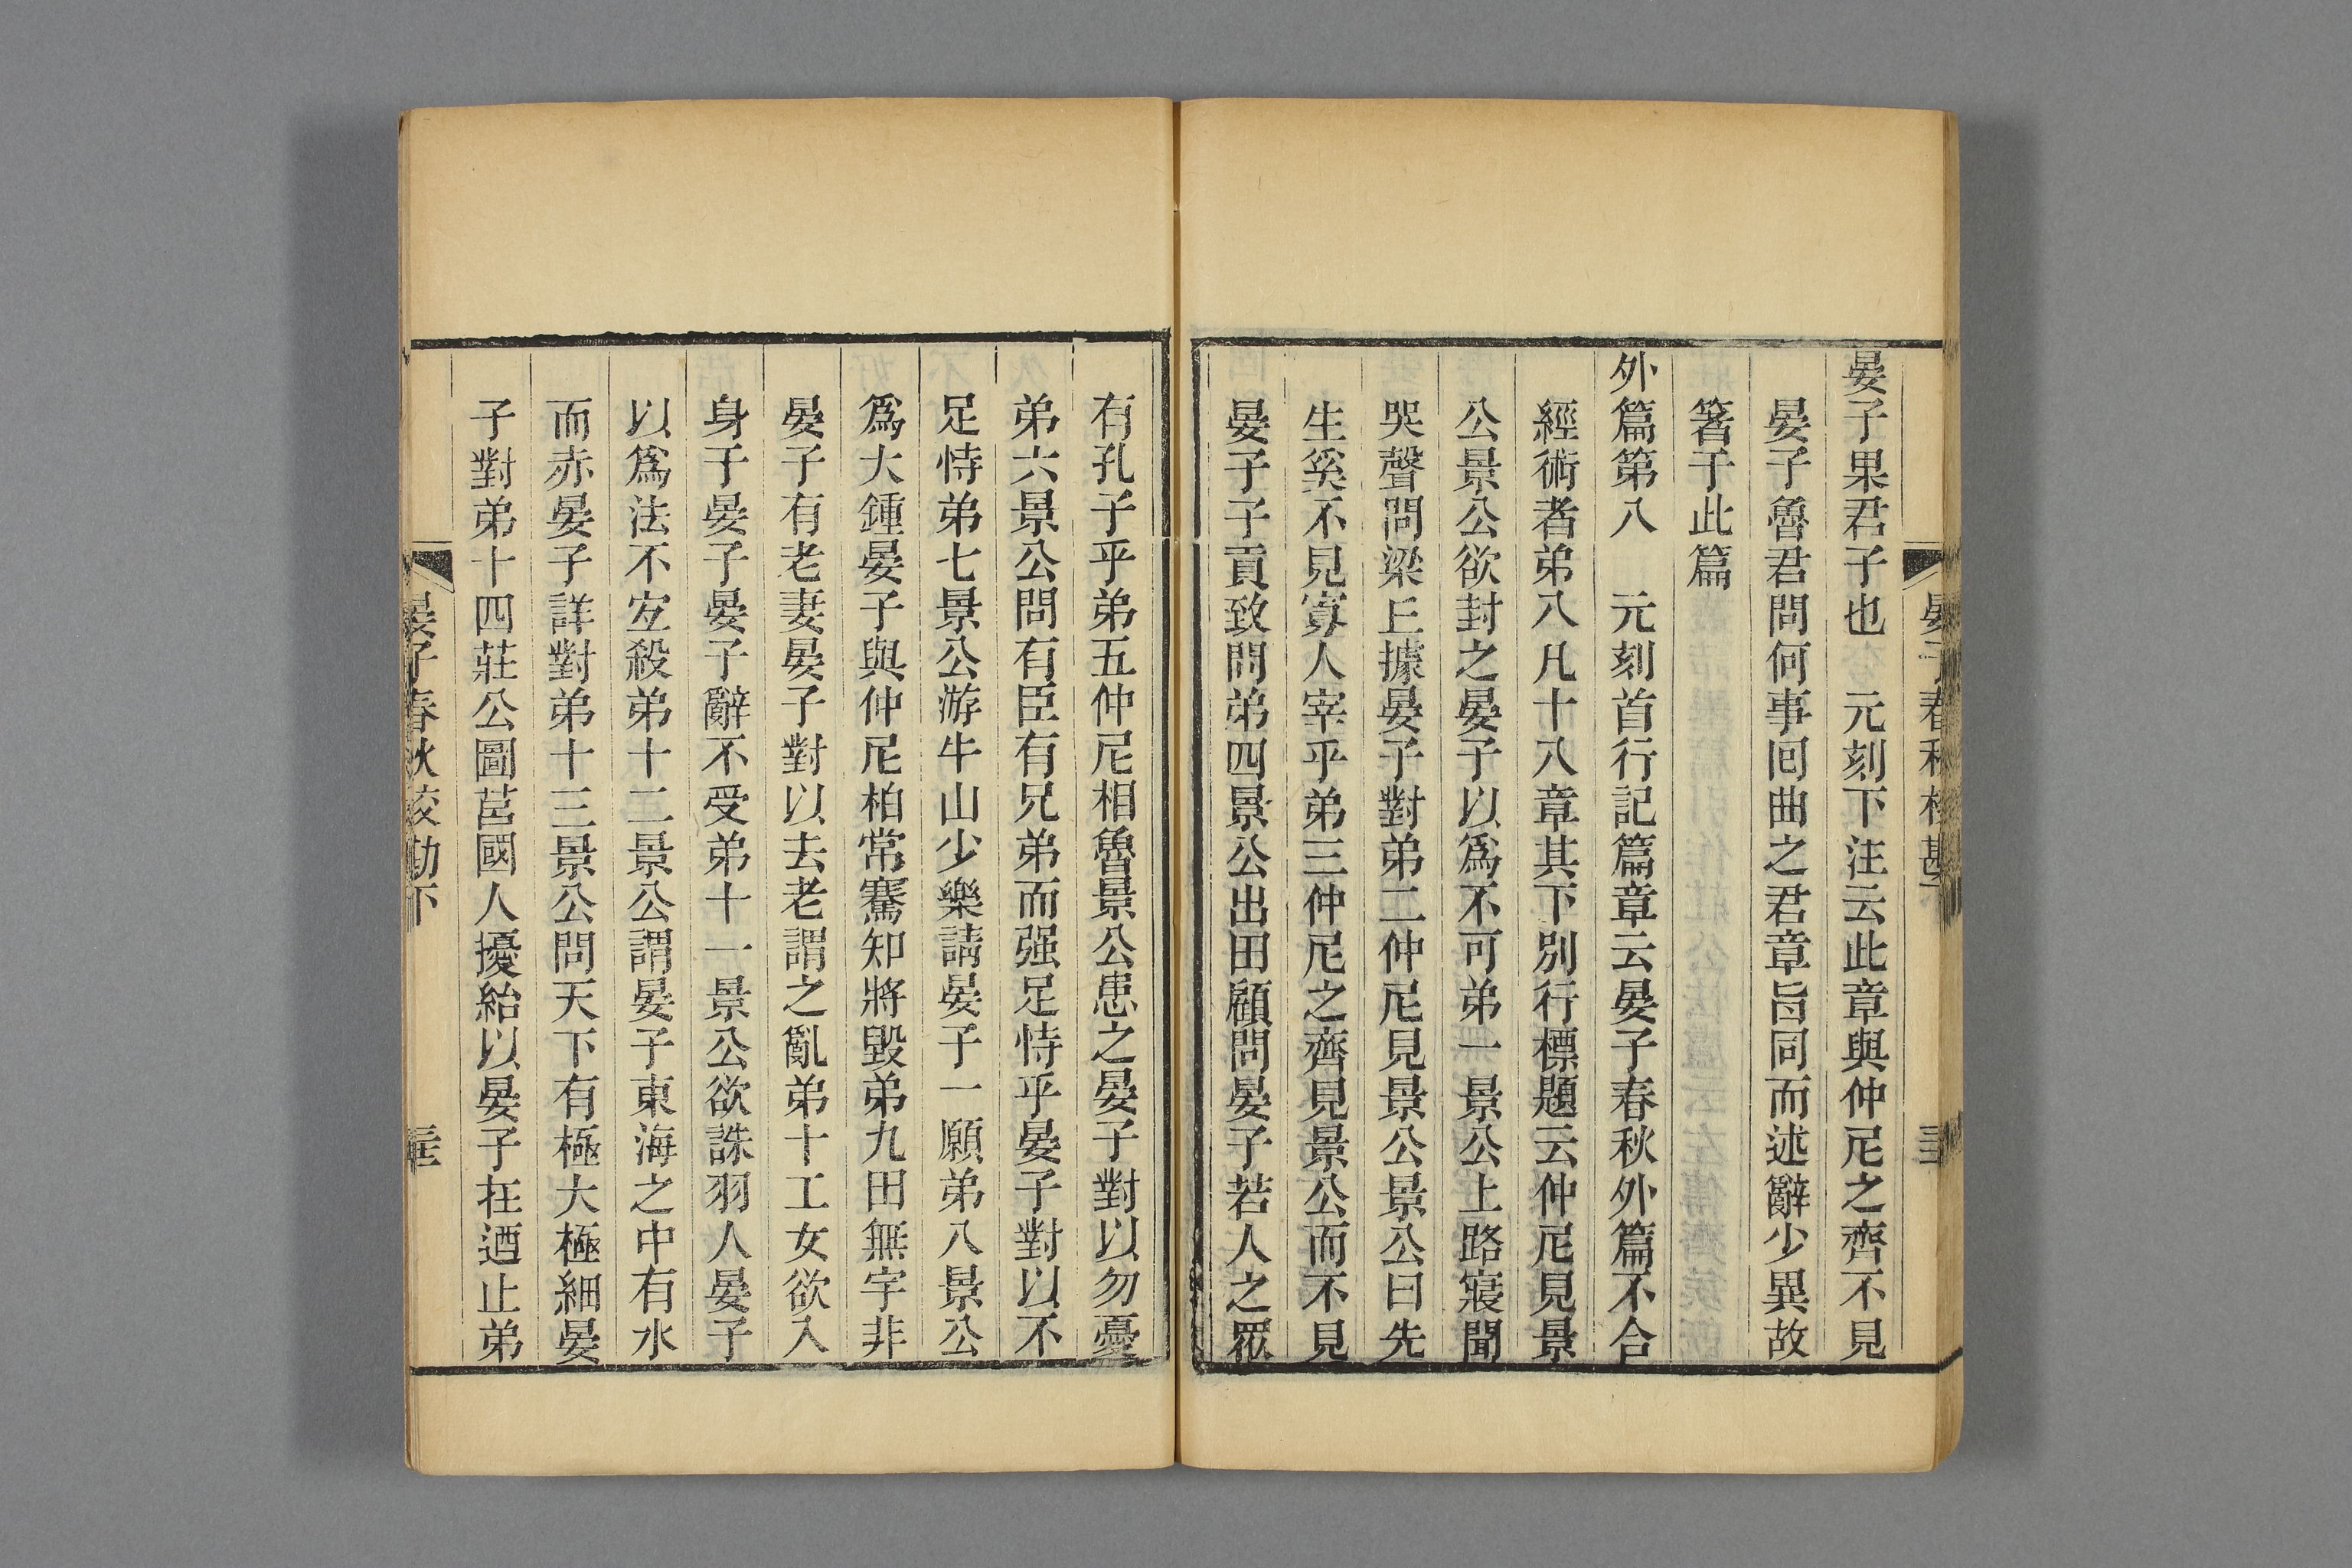 晏子果君子也　元刻下注云此章與仲尼之齊不見
晏子魯君問何事回曲之君章旨同而述辭少異故
箸于此篇
外篇第八　元刻首行記篇章云晏子春秋外篇不合
經術者弟八凡十八章其下別行標題云仲尼見景
公景公欲封之晏子以爲不可弟一景公上路寢聞
哭聲問梁丘據晏子對弟二仲尼見景公景公曰先
生奚不見寡人宰乎弟三仲尼之齊見景公而不見
晏子子貢致問弟四景公出田顧問晏子若人之眾
有孔子乎弟五仲尼相魯景公患之晏子對以勿憂
弟六景公問有臣有兄弟而强足恃乎晏子對以不
足恃弟七景公游牛山少樂請晏子一願弟八景公
爲大鍾晏子與仲尼柏常騫知將毀弟九田無宇非
晏子有老妻晏子對以去老謂之亂弟十工女欲入
身于晏子晏子辭不受弟十一景公欲誅羽人晏子
以爲法不宐殺弟十二景公謂晏子東海之中有水
而赤晏子詳對弟十三景公問天下有極大極細晏
子對弟十四莊公圖莒國人擾紿以晏子在迺止弟
晏子春秋校勘下